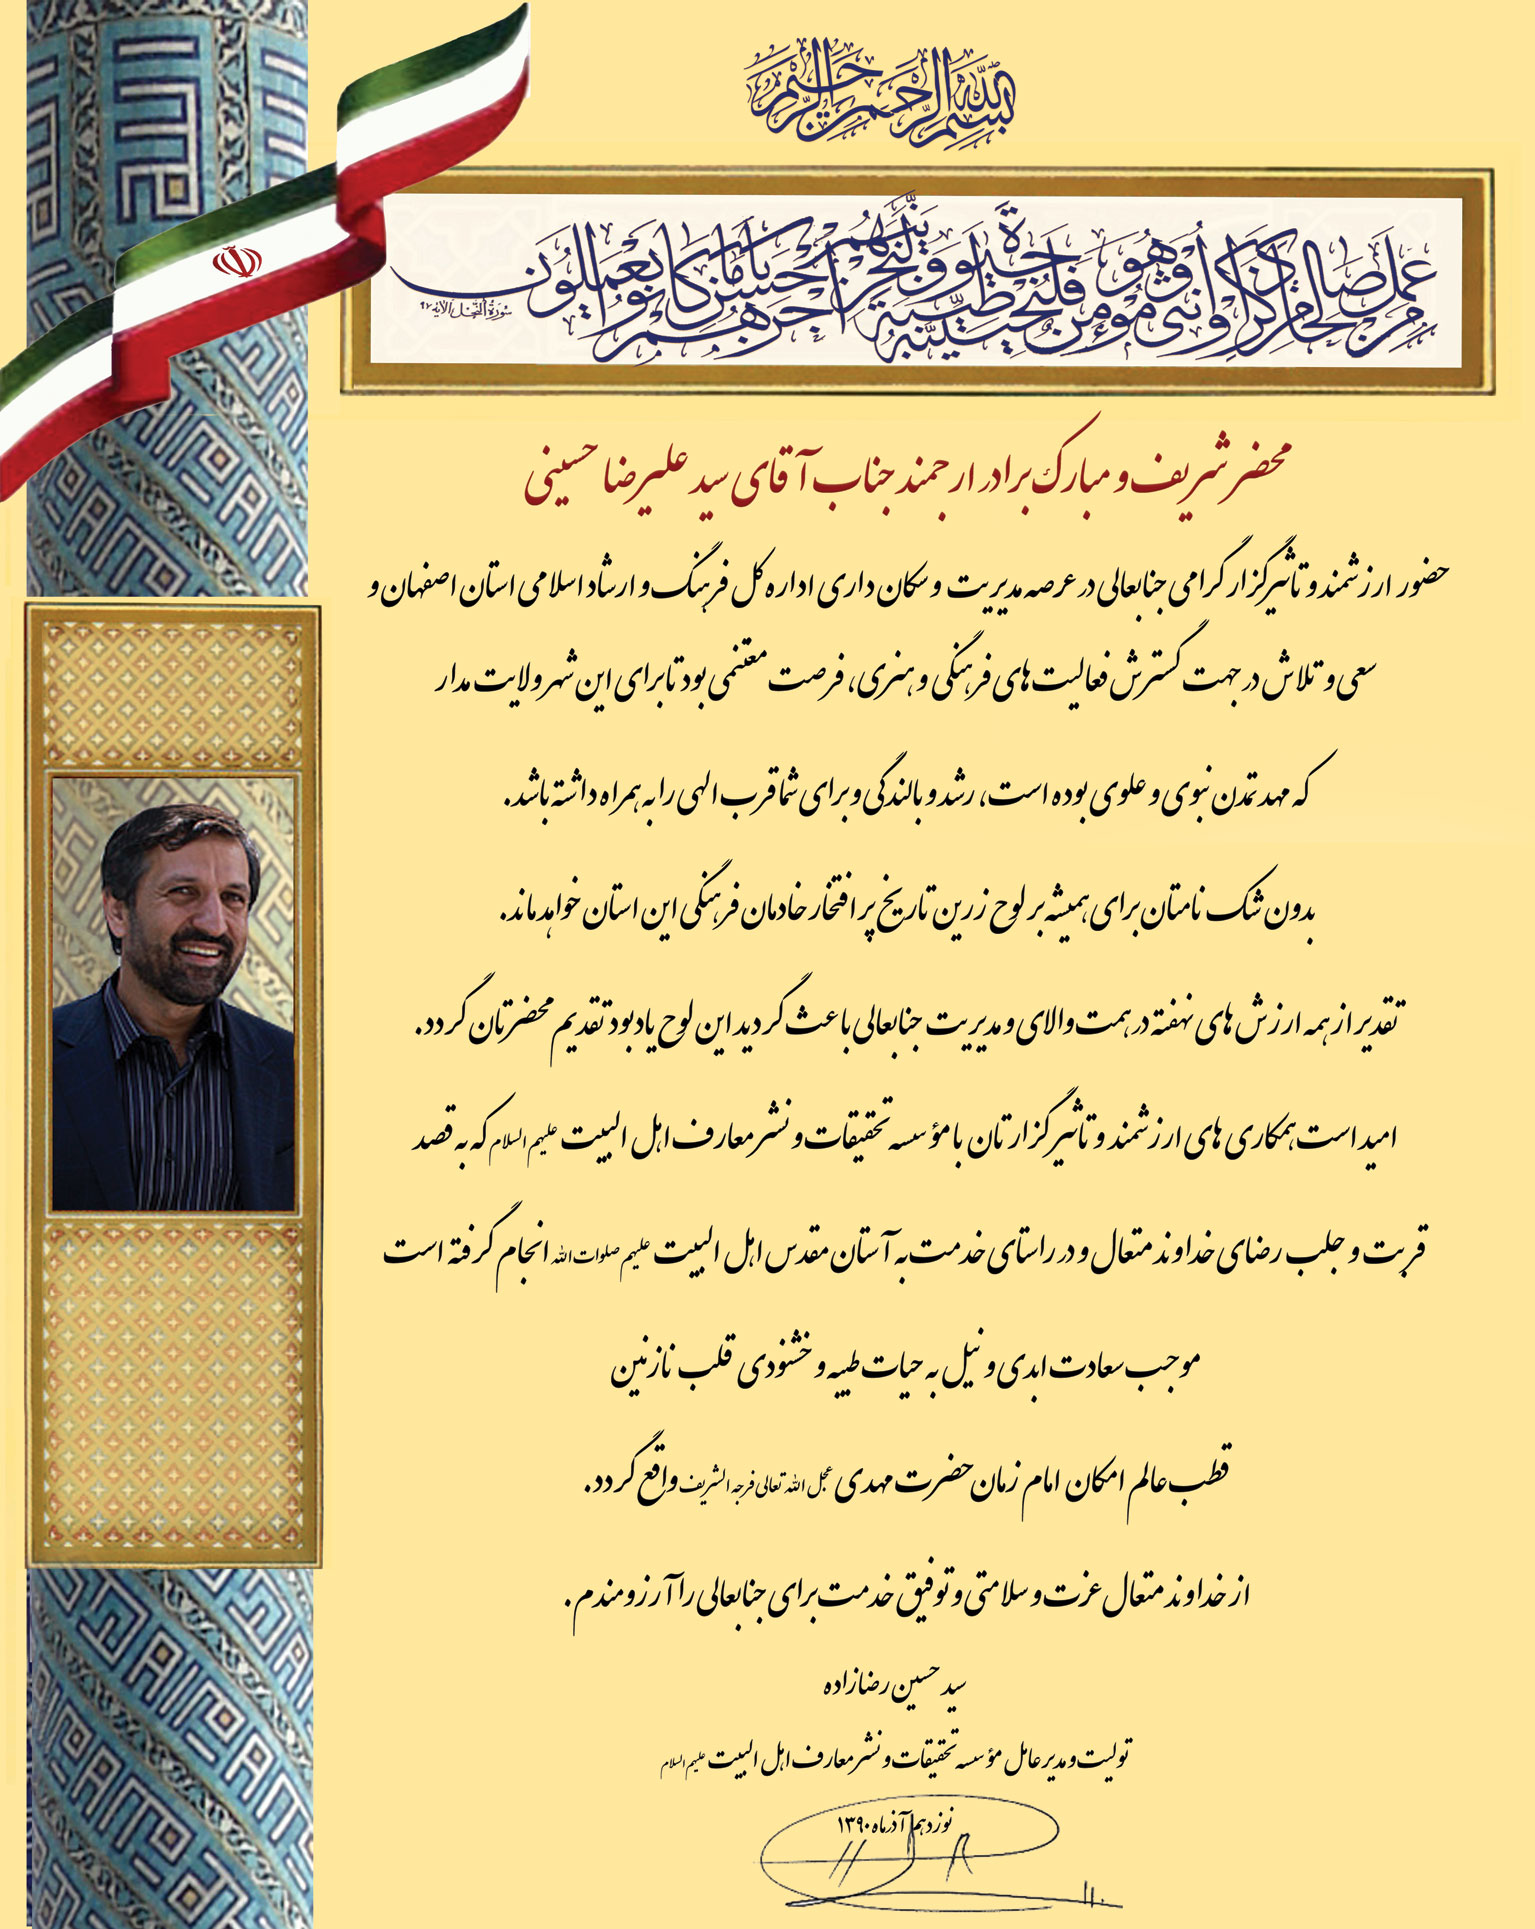 بسم الله الرحمن الرحیم
من عمل صالحا من ذکر او انثی و هو مؤمن فلنحیینه حیوة طیبة و لنجزینهم اجرهم باحسن ما کانوا یعملون
سورة النحل الآیه ۹۷
محضر شریف و مبارک برادر ارجمند جناب آقای سید علیرضا حسینی
حضور ارزشمند و تاثیرگزار گرامی جنابعالی در عرصه مدیریت و سکان داری اداره کل فرهنگ و ارشاد اسلامی استان اصفهان و
سعی و تلاش در جهت گسترش فعالیت های فرهنگی و هنری، فرصت مغتنمی بود تا برای این شهر ولایت مدار
که مهد تمدن نبوی و علوی بوده است، رشد و بالندگی و برای شما قرب الهی را به همراه داشته باشد.
بدون شک نامتان برای همیشه بر لوح زرین تاریخ پر افتخار خادمان فرهنگی این استان خواهد ماند.
تقدیر از همه ارزش های نهفته در همت والای و مدیریت جنابعالی باعث گردید این لوح یادبود تقدیم محضرتان گردد.
امید است همکاری های ارزشمند و تاثیرگزارتان با مؤسسه تحقیقات و نشر معارف اهل البیت علیهم السلام که به قصد
قربت و جلب رضای خداوند متعال و در راستای خدمت به آستان مقدس اهل البیت علیهم صلوات الله انجام گرفته است
موجب سعادت ابدی و نیل به حیات طیبه و خشنودی قلب نازنین
قطب عالم امکان امام زمان حضرت مهدی عجل الله تعالی فرجه الشریف واقع گردد.
از خداوند متعال عزت و سلامتی و توفیق خدمت برای جنابعالی را آرزومندم.
سید حسین رضازاده
تولیت و مدیر عامل مؤسسه تحقیقات و نشر معارف اهل البیت علیهم السلام
نوزدهم آذرماه ۱۳۹۰